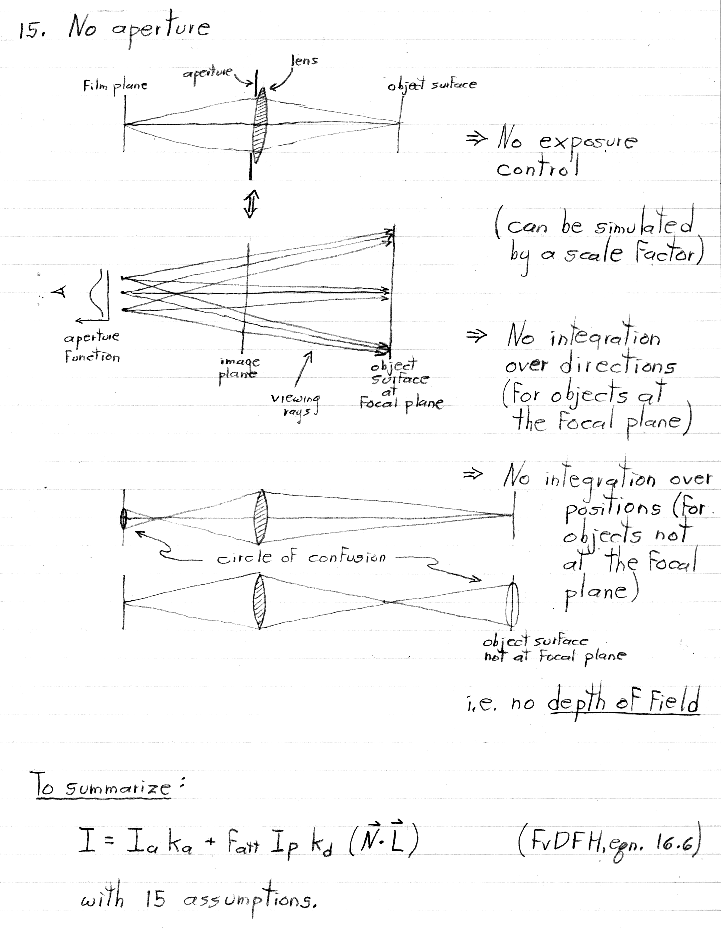 15. No aperture
Film plane
aperture
lens
object surface
⇒ No exposure
control
(can be simulated
by a scale factor)
aperture
function
image
plane
viewing
rays
object
surface
at
focal plane
⇒ No integration
over directions
(for objects at
the focal plane)
⇒ No integration over
positions (for
objects not
at the focal
plane)
circle of confusion
object surface
not at focal plane
i.e. no depth of field
To summarize:
I = Ia ka + fatt Ip kd (N⃗·L⃗)
(FvDFH, eqn. 16.6)
with 15 assumptions.